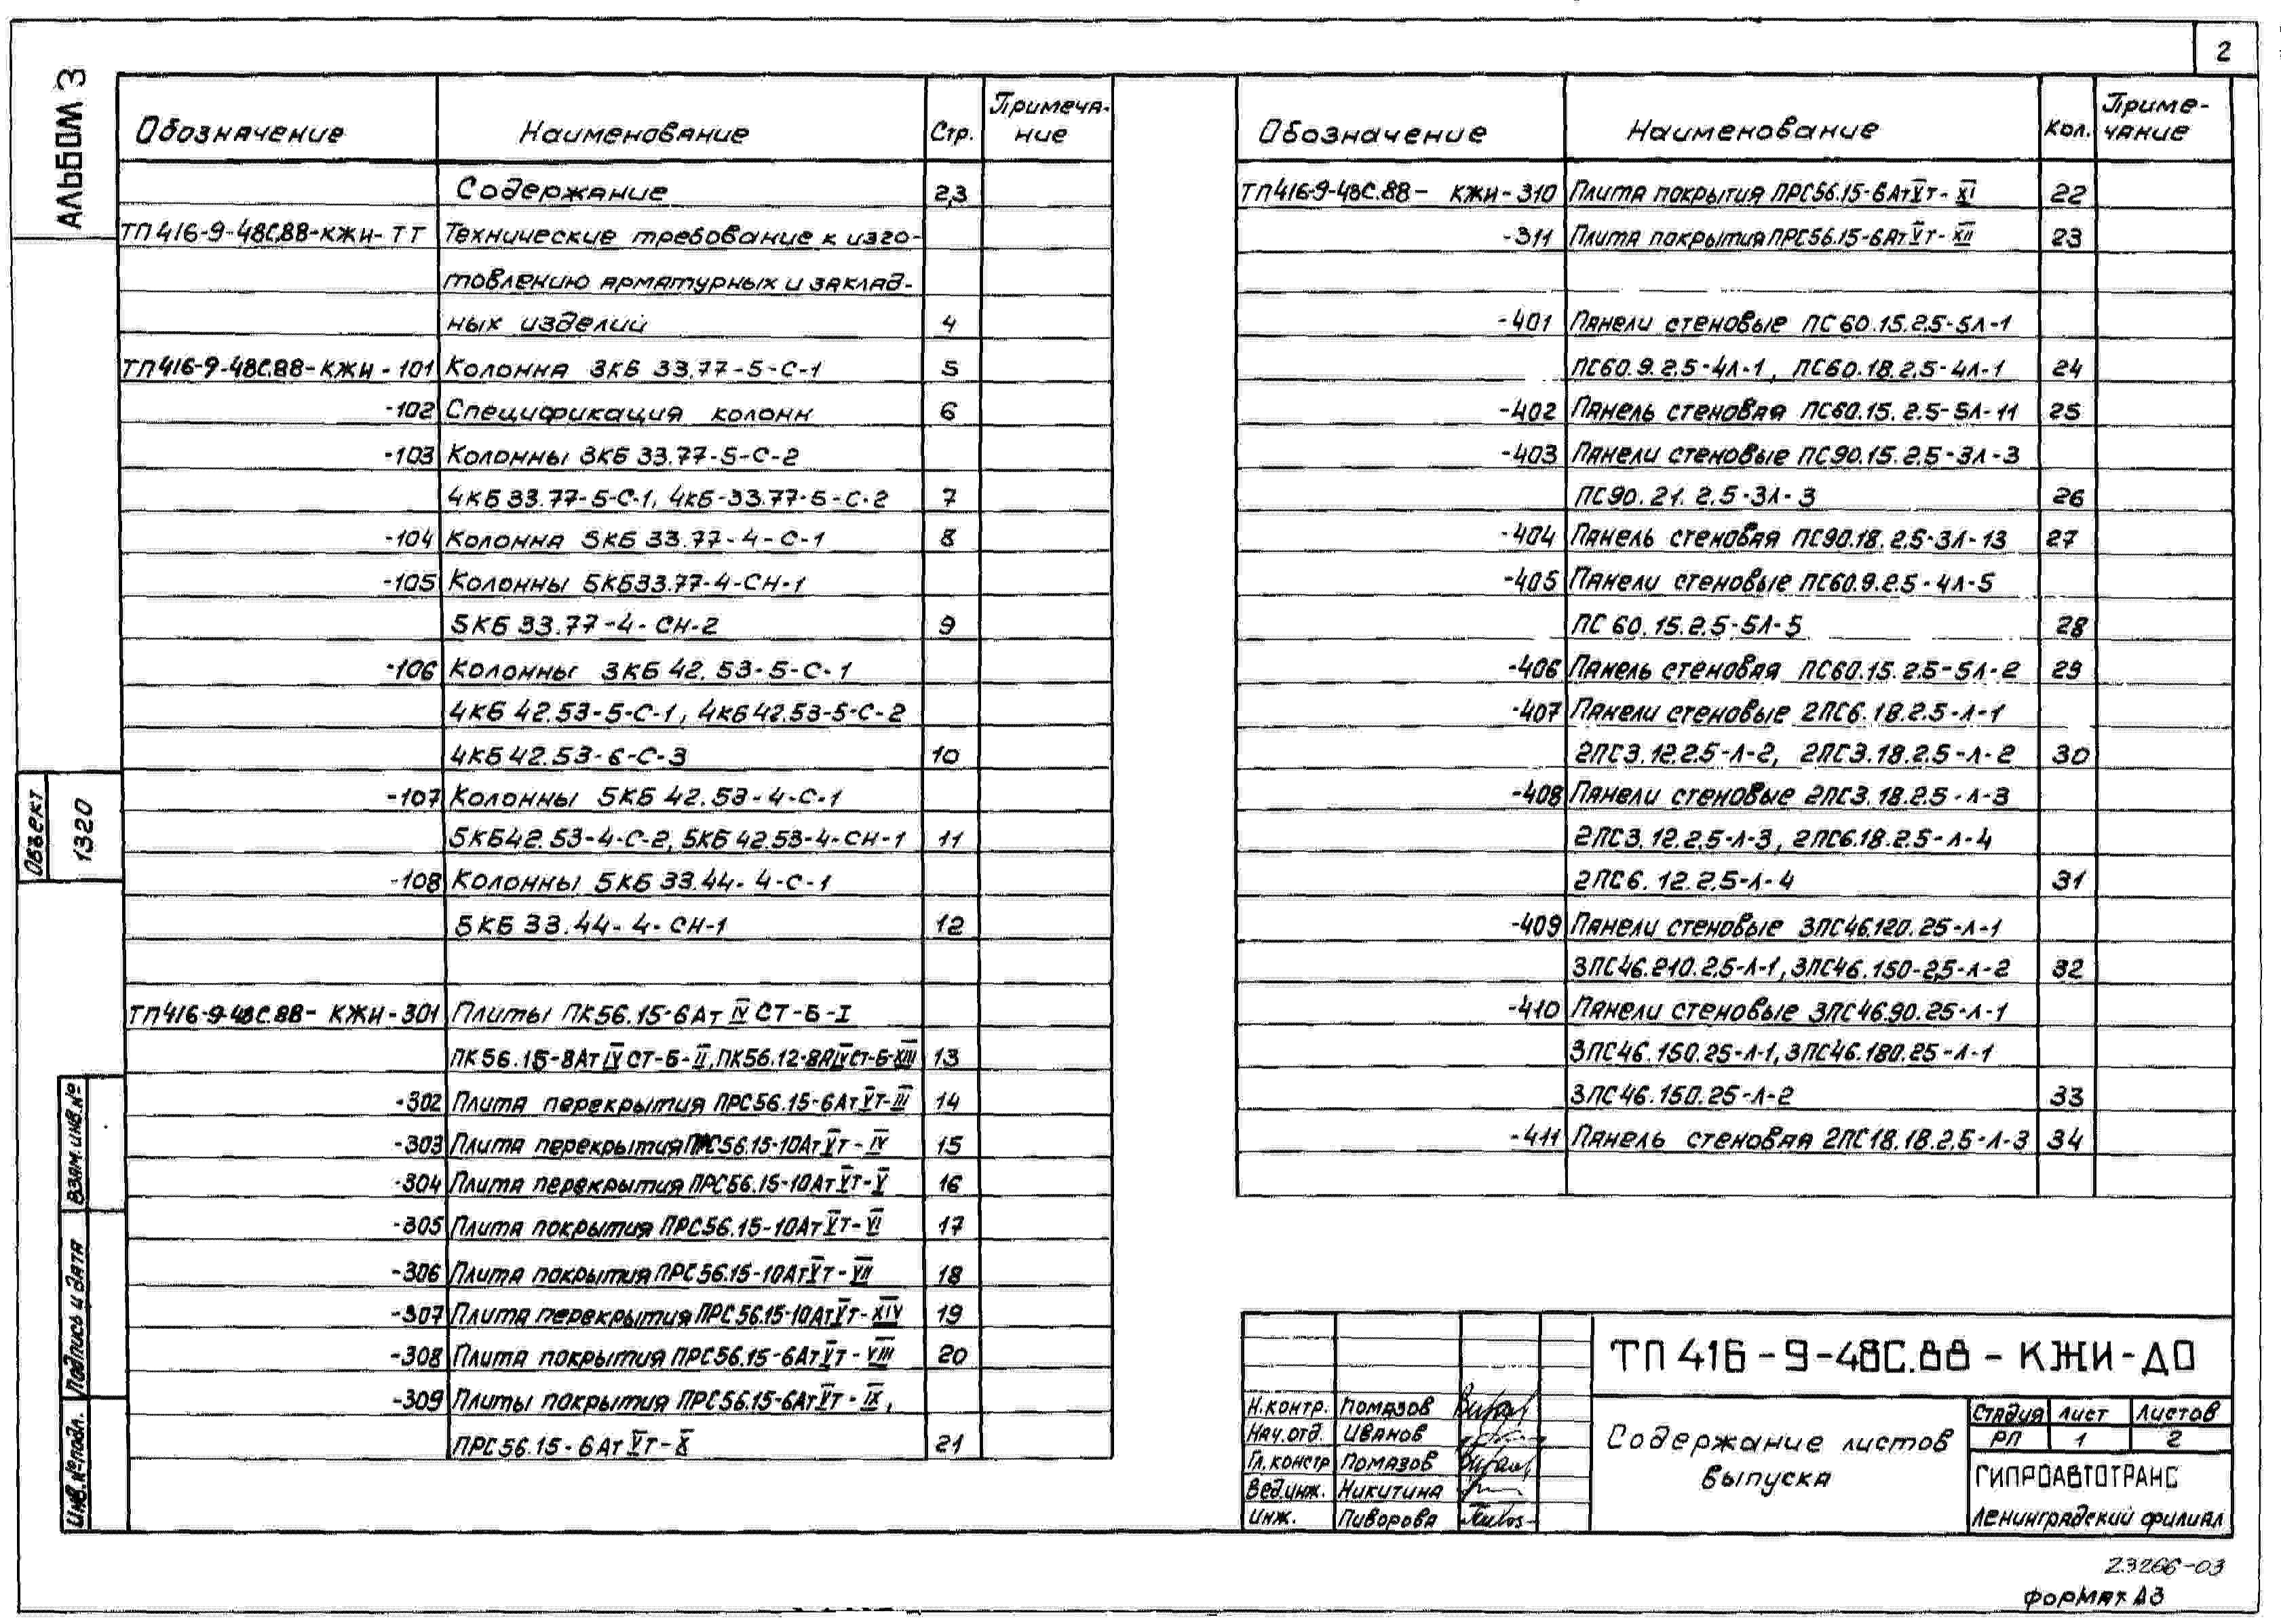 2
АЛЬБОМ 3
Обозначение Наименование Стр. Примеча-
ние
Содержание 2,3
ТП416-9-48С.88-КЖИ-ТТ Технические требование к изго-
товлению арматурных и заклад-
ных изделий 4
ТП416-9-48С.88-КЖИ-101 Колонна 3КБ 33.77-5-С-1 5
-102 Спецификация колонн 6
-103 Колонны 3КБ 33.77-5-С-2
4КБ 33.77-5-С-1, 4КБ-33.77-5-С-2 7
-104 Колонна 5КБ 33.77-4-С-1 8
-105 Колонны 5КБ33.77-4-СН-1
5КБ 33.77-4-СН-2 9
-106 Колонны 3КБ 42.53-5-С-1
4КБ 42.53-5-С-1, 4КБ42.53-5-С-2
4КБ 42.53-6-С-3 10
-107 Колонны 5КБ 42.53-4-С-1
5КБ42.53-4-С-2, 5КБ 42.53-4-СН-1 11
-108 Колонны 5КБ 33.44-4-С-1
5КБ 33.44-4-СН-1 12
ТП416-9-48С.88-КЖИ-301 Плиты ПК56.15-6Ат IV СТ-Б-I
ПК56.15-8Ат IV СТ-Б-II, ПК56.12-8АIVСТ-Б-XIII 13
-302 Плита перекрытия ПРС56.15-6Ат VТ-III 14
-303 Плита перекрытия ПРС56.15-10Ат VТ-IV 15
-304 Плита перекрытия ПРС56.15-10Ат VТ-V 16
-305 Плита покрытия ПРС56.15-10Ат VТ-VI 17
-306 Плита покрытия ПРС56.15-10Ат VТ-VII 18
-307 Плита перекрытия ПРС56.15-10Ат VТ-XIV 19
-308 Плита покрытия ПРС56.15-6Ат VТ-VIII 20
-309 Плиты покрытия ПРС56.15-6Ат VТ-IX,
ПРС56.15-6Ат VТ-X 21
Обозначение Наименование Кол. Приме-
чание
ТП416-9-48С.88-КЖИ-310 Плита покрытия ПРС56.15-6Ат VТ-XI 22
-311 Плита покрытия ПРС56.15-6Ат VТ-XII 23
-401 Панели стеновые ПС60.15.2.5-5Л-1
ПС60.9.2.5-4Л-1, ПС60.18.2.5-4Л-1 24
-402 Панель стеновая ПС60.15.2.5-5Л-11 25
-403 Панели стеновые ПС90.15.2.5-3Л-3
ПС90.21.2.5-3Л-3 26
-404 Панель стеновая ПС90.18.2.5-3Л-13 27
-405 Панели стеновые ПС60.9.2.5-4Л-5
ПС60.15.2.5-5Л-5 28
-406 Панель стеновая ПС60.15.2.5-5Л-2 29
-407 Панели стеновые 2ПС6.18.2.5-Л-1
2ПС3.12.2.5-Л-2, 2ПС3.18.2.5-Л-2 30
-408 Панели стеновые 2ПС3.18.2.5-Л-3
2ПС3.12.2.5-Л-3, 2ПС6.18.2.5-Л-4
2ПС6.12.2.5-Л-4 31
-409 Панели стеновые 3ПС46.120.25-Л-1
3ПС46.210.2.5-Л-1, 3ПС46.150-2,5-Л-2 32
-410 Панели стеновые 3ПС46.90.25-Л-1
3ПС46.150.25-Л-1, 3ПС46.180.25-Л-1
3ПС46.150.25-Л-2 33
-411 Панель стеновая 2ПС18.18.2.5-Л-3 34
Объект 1320
Взам.инв.№
Подпись и дата
Инв.№ подл.
ТП 416-9-48С.88-КЖИ-ДО
Н.контр. Помазов
Нач.отд. Иванов
Гл.констр Помазов
Вед.инж. Никитина
Инж. Пиворова
Содержание листов
выпуска
Стадия Лист Листов
РП 1 2
ГИПРОАВТОТРАНС
Ленинградский филиал
23266-03
Формат А3